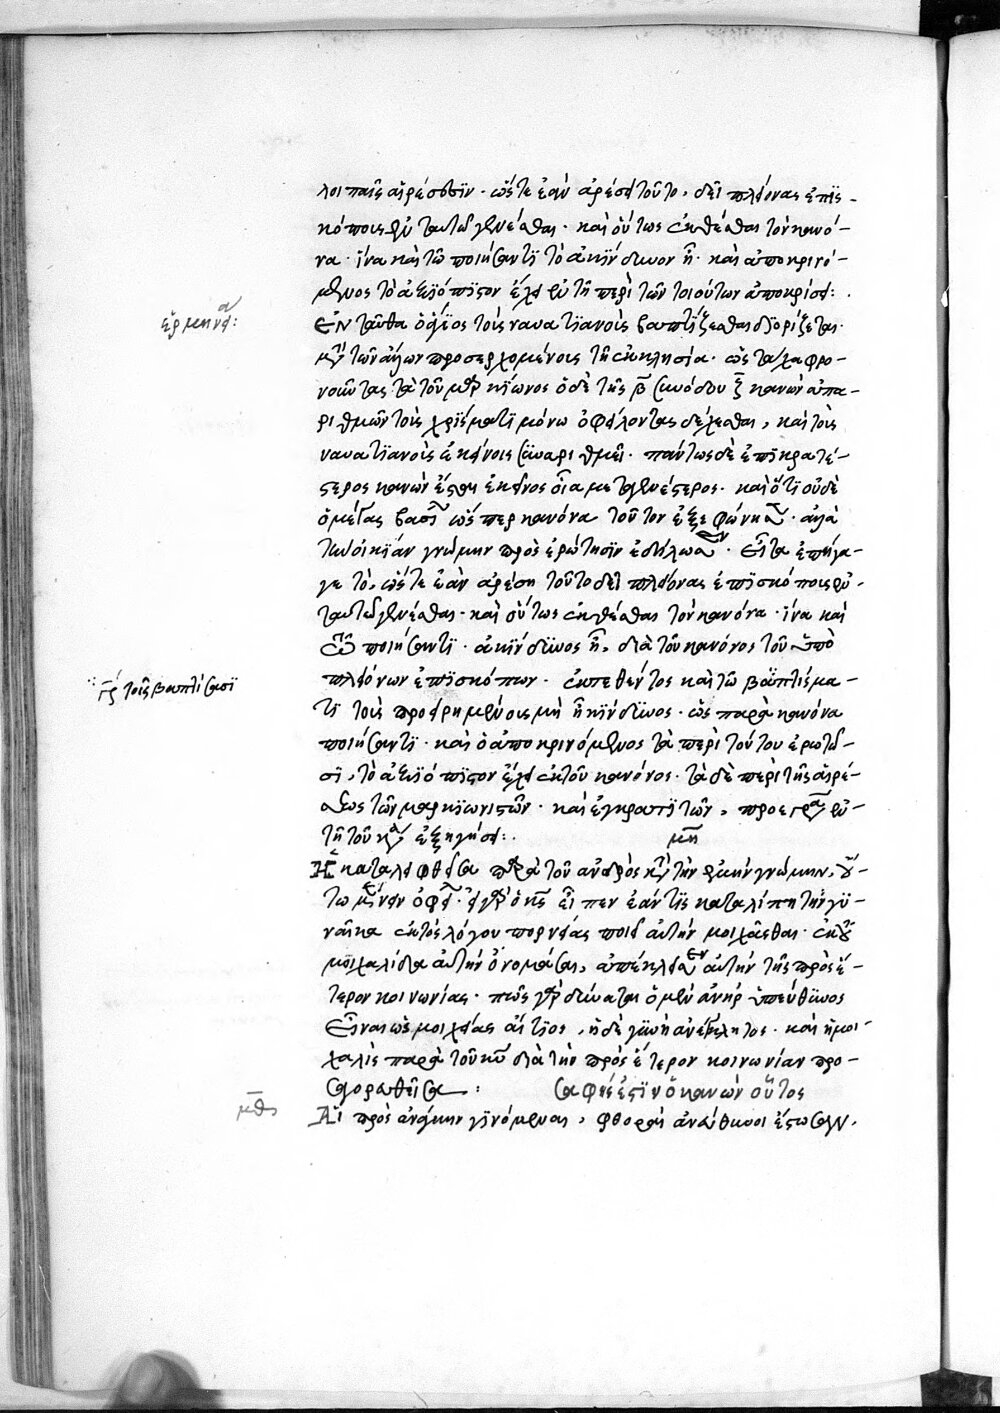 λοιπαῖς αἱρέσεσϊν· ὥστε ἐὰν ἀρέσει τοῦτο, δεῖ πλείονας ἐπϊσ-
κόπους ἐν ταυτῶ γενέσθαι· καὶ οὕτως ἐκθέσθαι τὸν κανό-
να· ἵνα καὶ τῶ ποιήσαντϊ τὸ ἀκίνδυνον ῆ· καὶ ἀποκρινό-
μενος τὸ ἀξϊόπϊστον ἔχει ἐν τῆ περὶ τῶν τοιούτων ἀποκρίσει:
ἑρμηνεία:
Ἐνταῦθα ὁ θεῖος τοὺς ναυατϊανοὺς βαπτϊζεσθαι διορίζεται·
μετὰ τῶν ἄλλων προσερχομένους τῆ ἐκκλησία· ὡς ταὐτα φρο-
νοῦντας τὰ τοῦ μαρκϊωνος ὁ δὲ τῆς β συνόδου ζ κανὼν ἀπα-
ριθμῶν τοὺς χρίσματϊ μόνω ὀφείλοντας δέχεσθαι, καὶ τοὺς
ναυατϊανοὺς ἐκείνοις συναριθμεῖ· πάντως δὲ ἐπϊκρατέ-
στερος κανών ἐστιν ἐκεῖνος οἷα μεταγενέστερος· καὶ ὅτϊ οὐδὲ
ὁ μέγας βασί ὥσπερ κανόνα τοῦτον ἐξεφώνησεν· ἀλλὰ
τὴν οἰκϊαν γνώμην πρὸς ἐρώτησϊν ἐδήλωσεν· Εἶτα ἐπήγα-
γε τὸ, ὥστε ἐὰν ἀρέση τοῦτο δεῖ πλείονας ἐπϊσκόπους ἐν
ταυτῶ γενέσθαι· καὶ οὕτως ἐκθέσθαι τὸν κανόνα· ἵνα καὶ
τῶ ποιήσαντϊ· ἀκίνδϋνος ῆ, διὰ τοῦ κανόνος τοῦ ὑπὸ
πλειόνων ἐπϊσκόπων· ἐκτεθέντος καὶ τῶ βαπτίσμα-
γρ τοῖς βαπτίσασϊ
τϊ τοὺς προειρημένους μὴ ῆ κίνδϋνος· ὡς παρὰ κανόνα
ποιήσαντϊ· καὶ ὁ ἀποκρινόμενος τὰ περὶ τούτου ἐρωτῶ-
σϊ, τὸ ἀξϊόπϊστον ἔχει ἐκ τοῦ κανόνος· τὰ δὲ περὶ τῆς αἱρέ-
σεως τῶν μαρκϊωνιστῶν· καὶ ἐγκρατϊτῶν, προεγρά ἐν
τῆ τοῦ ἐξηγήσει:.
μη
Ἡ καταλειφθεῖσα παρὰ τοῦ ἀνδρὸς κατὰ τὴν ἐμὴν γνώμην, οὕ-
τω μένειν ὀφεί· εἰ γὰρ ὁ κς εἶπεν ἐάν τϊς καταλίπη τὴν γϋ-
ναῖκα ἐκτὸς λόγου πορνείας ποιεῖ αὐτὴν μοιχᾶσθαι· ἐκ τοῦ
μοϊχαλίδα αὐτὴν ὀνομάσαι, ἀπέκλεισεν αὐτὴν τῆς πρὸς ἕ-
τερον κοινωνίας· πῶς γὰρ δύναται ὁ μὲν ἀνὴρ ὑπεύθϋνος
εἶναι ὡς μοιχείας αἴτϊος, ἡ δὲ γϋνὴ ἀνέγκλητος· καὶ ἡ μοι-
χαλὶς παρὰ τοῦ κυ διὰ τὴν πρὸς ἕτερον κοινωνίαν προ-
σαγορευθεῖσα: σαφής ἐστϊν ὁ κανὼν οὗτος
μθ
Αἱ πρὸς ἀνάγκην γϊνόμεναι, φθοραὶ ἀνεύθϋνοι ἔστωσαν.